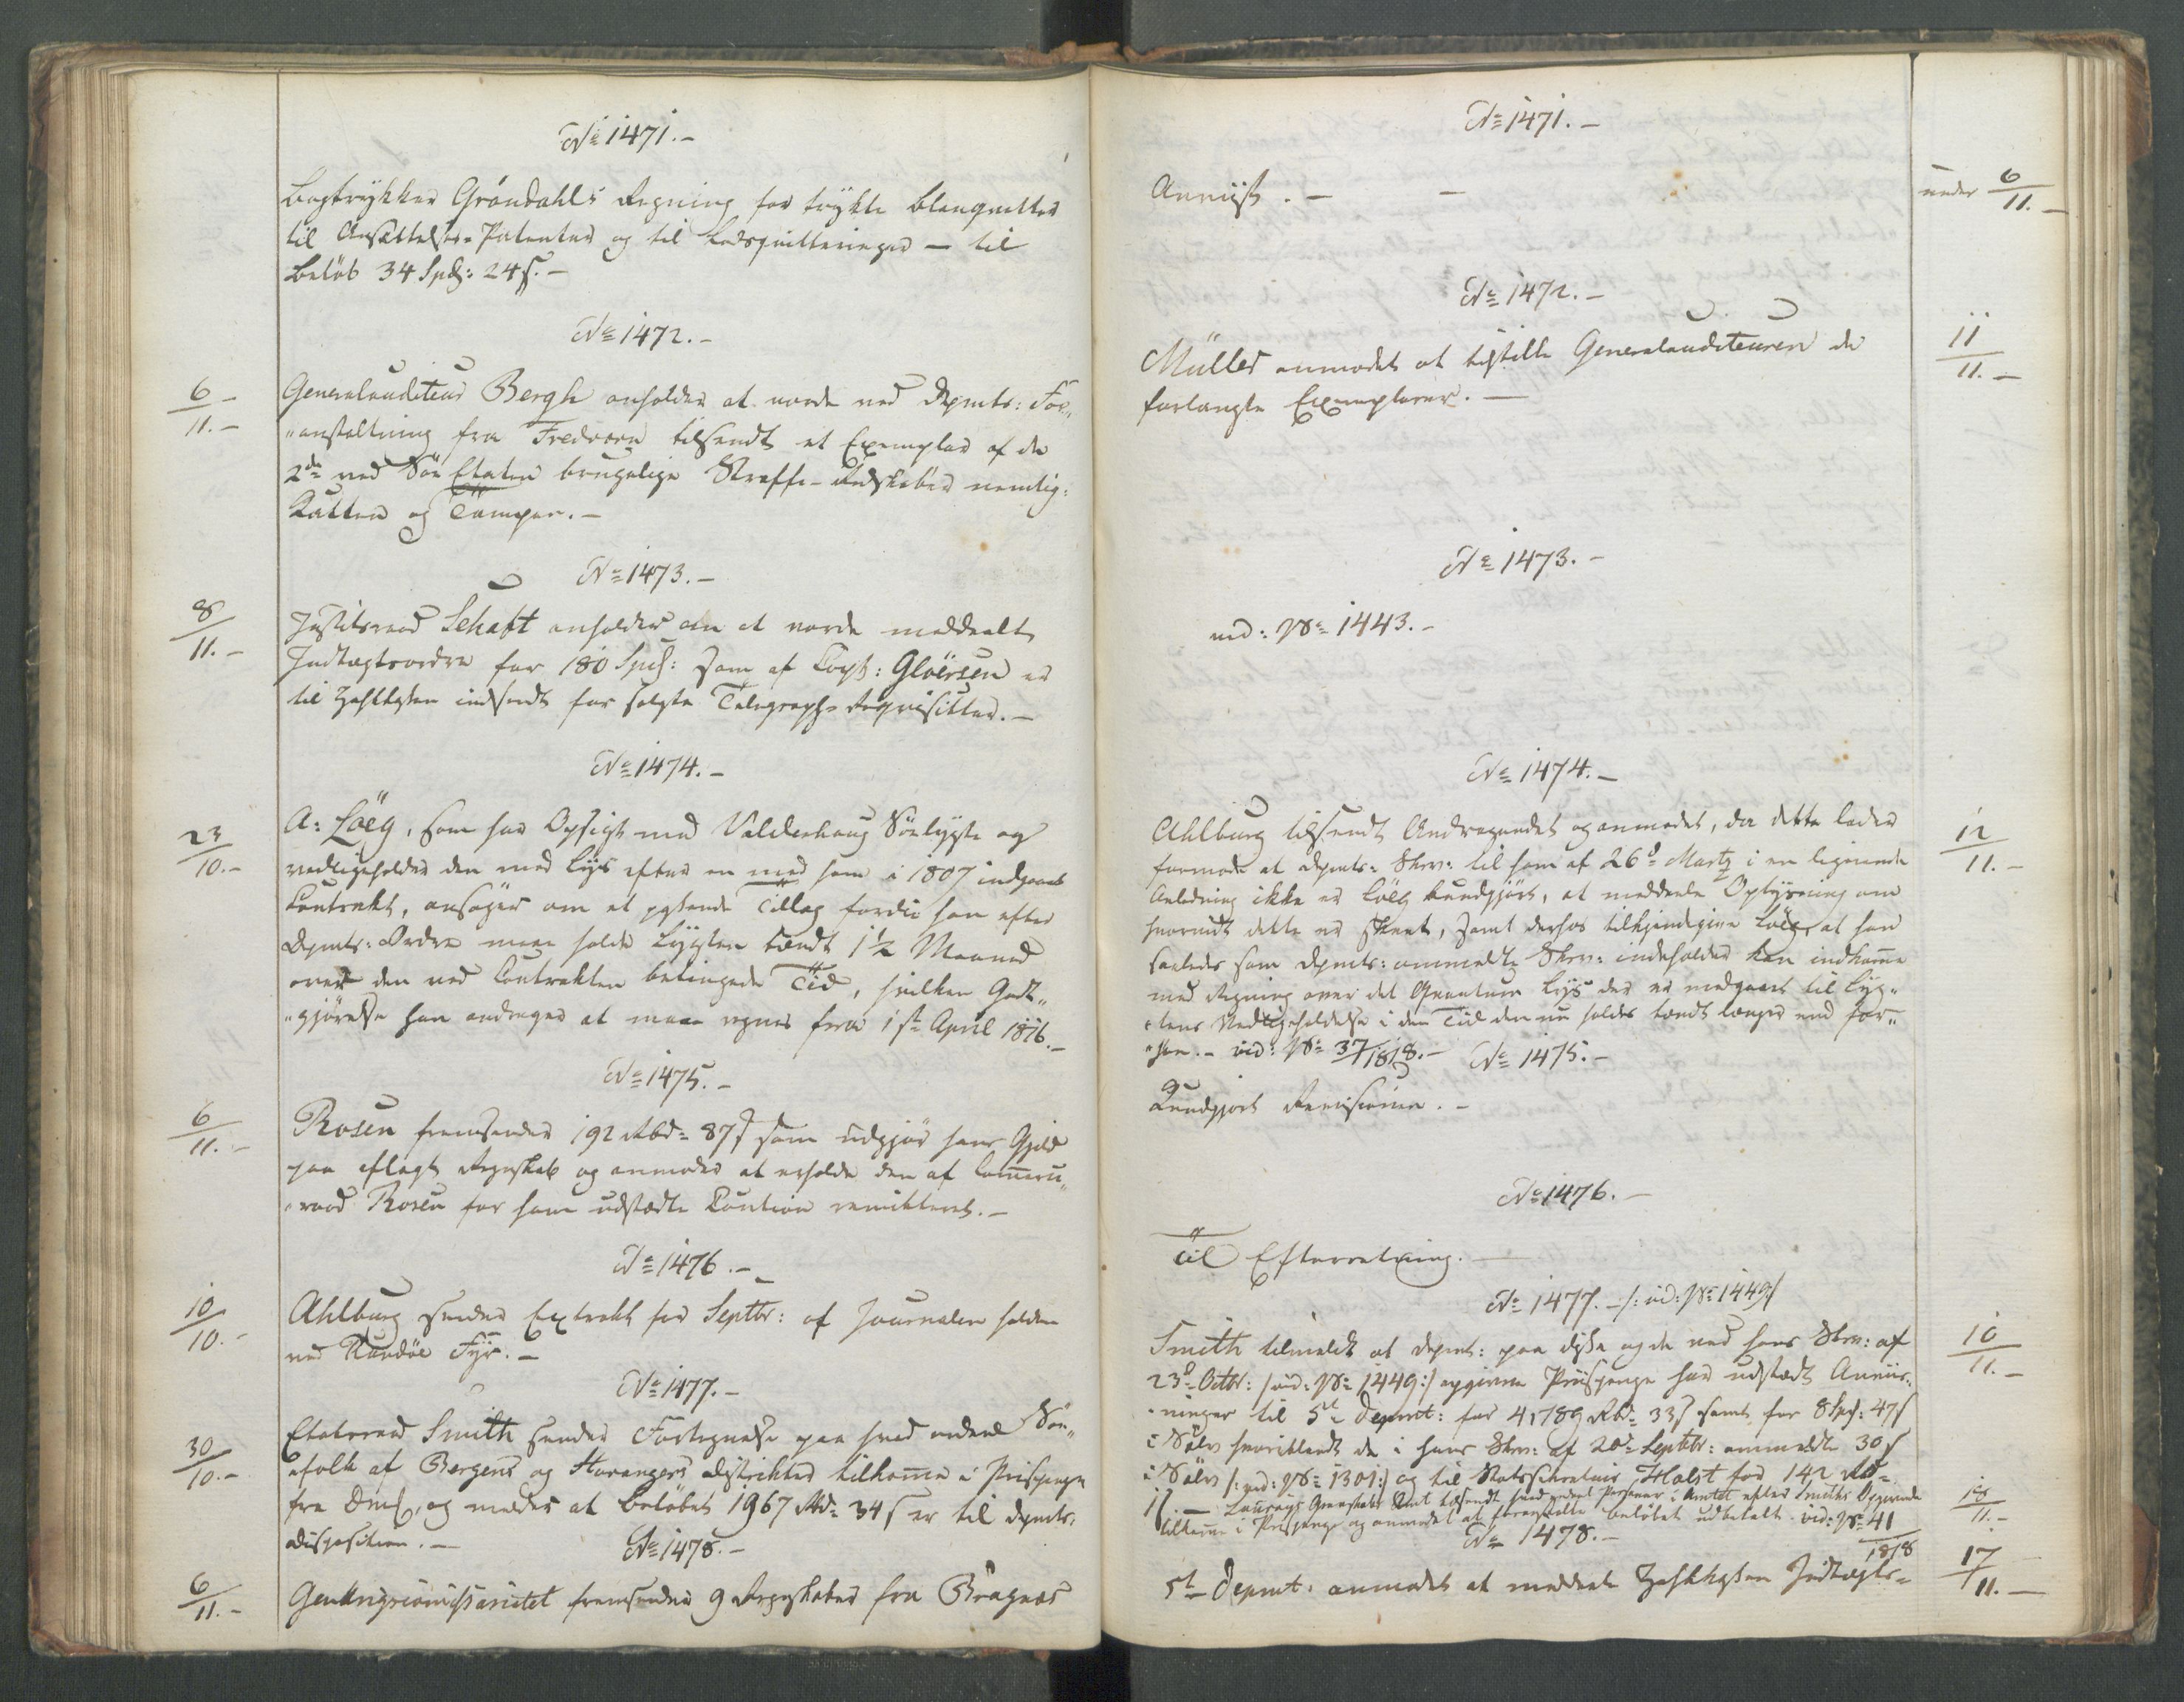 No 1471.-
Bogtrykker Gröndahls Regning for trykte Blanquetter
til Ansættelses-Patenter og til - til
Beløb 34 Spd: 24 s.-
No 1472.-
6/11.- Generalauditeur Bergh anholder at vorde ved Dpmts: For„
„anstaltning fra Fredværn tilsendt et Exemplar af de
2de ved Söe Etaten brugelige Straffe-Redskaber nemlig:
Katten og Tampen.-
No 1473.-
8/11.- Justitsraad Schaft anholder om at vorde meddeelt
Indtægtsordre for 180 Spd: som af Capt: Gloërsen er
til Zahlkassen indsendt for solgte Telegraph-Reqvisitter.-
No 1474.-
23/10.- A: Löeg, som har Opsigt med Valderhaug Söelygte og
vedligeholder den med Lys efter en med ham i 1807 indgaaet
Contrakt, ansöger om et passende Tillæg fordi han efter
Dpmts: Ordre maae holde Lygten tændt 1½ Maaned
over den ved Contrakten betingede Tid, hvilken Godt„
„gjörelse han andrager at maae regnes fra 1ste April 1816.-
No 1475.-
6/11.- Rosen fremsender 192 Rbd: 87 s som udgjör hans Gjæld
paa aflagt Regnskab og anmoder at erholde den af Cammer„
„raad Rosen for ham udstædte Caution remitteret.-
No 1476.-
10/10.- Ahlburg sender Extrakt for Septbr: af Journalen holden
ved Rundöe Fyr.-
No 1477.-
30/10.- Etatsraad Smith sender Fortegnelse paa hvad endeel Söe„
„folk af Bergens og Stavangers Distrikter tilkomme i Prisepenge
fra Dmk, og melder at Beløbet 1967 Rbd: 34 s er til Dpmts:
Disposition.-
No 1478.-
6/11.- Genkrigscommissariatet fremsender 9 Regnskaber fra Bragnæs
No 1471.-
Anviist.- - under 6/11.-
No 1472.-
Müller anmodet at tilstille Generalauditeuren de 11/11.-
forlangte Exemplarer.-
No 1473.-
vid: No 1443.-
No 1474.-
Ahlburg tilsendt Andragendet og anmodet, da dette lader 12/11.-
formode at Dpmts: Skrv: til ham af 26de Martz i en lignende
Anledning ikke er Löeg kundgjort, at meddeele Oplysning om
hvorvidt dette er skeet, samt derhos tilkjendegive Löeg, at han
saaledes som Dpmts: ommeldte Skrv: indeholder kan indkomme
med Regning over det Qvantum Lys der er medgaaet til Lyg„
„tens Vedligeholdelse i den Tid den nu holdes tændt længer end för„
„hen.- vid: No 37/1818.- No 1475.-
Kundgjort Revisionen.-
No 1476.-
Til Efterretning.-
No 1477.- /: vid: No 1449 :/
Smith tilmeldt at Dpmt: paa disse og de ved hans Skrv: af 10/11.-
23de Octbr: /: vid: No 1449 :/ opgivne Prisepenge har udstædt Anvis„
„ninger til 5te Depmt: for 41789 Rbd: 33 s samt for 8 Spd: 47 s
i Sölv hvoriblandt de i hans Skrv: af 20de Septbr: ommeldte 30 s
i Sölv /: vid: No 1301 :/ og til Statssecretair Holst for 142 Rbd:
1 s.- Amt tilsendt hvad endeel Personer i Amtet efter Smiths Opgivende 18/11.-
tilkomme i Prisepenge og anmodet at foranstalte Beløbet udbetalt. vid: No 41/1818
No 1478.-
5te Depmt: anmodet at meddeele Zahlkassen Indtægts- 17/11.-